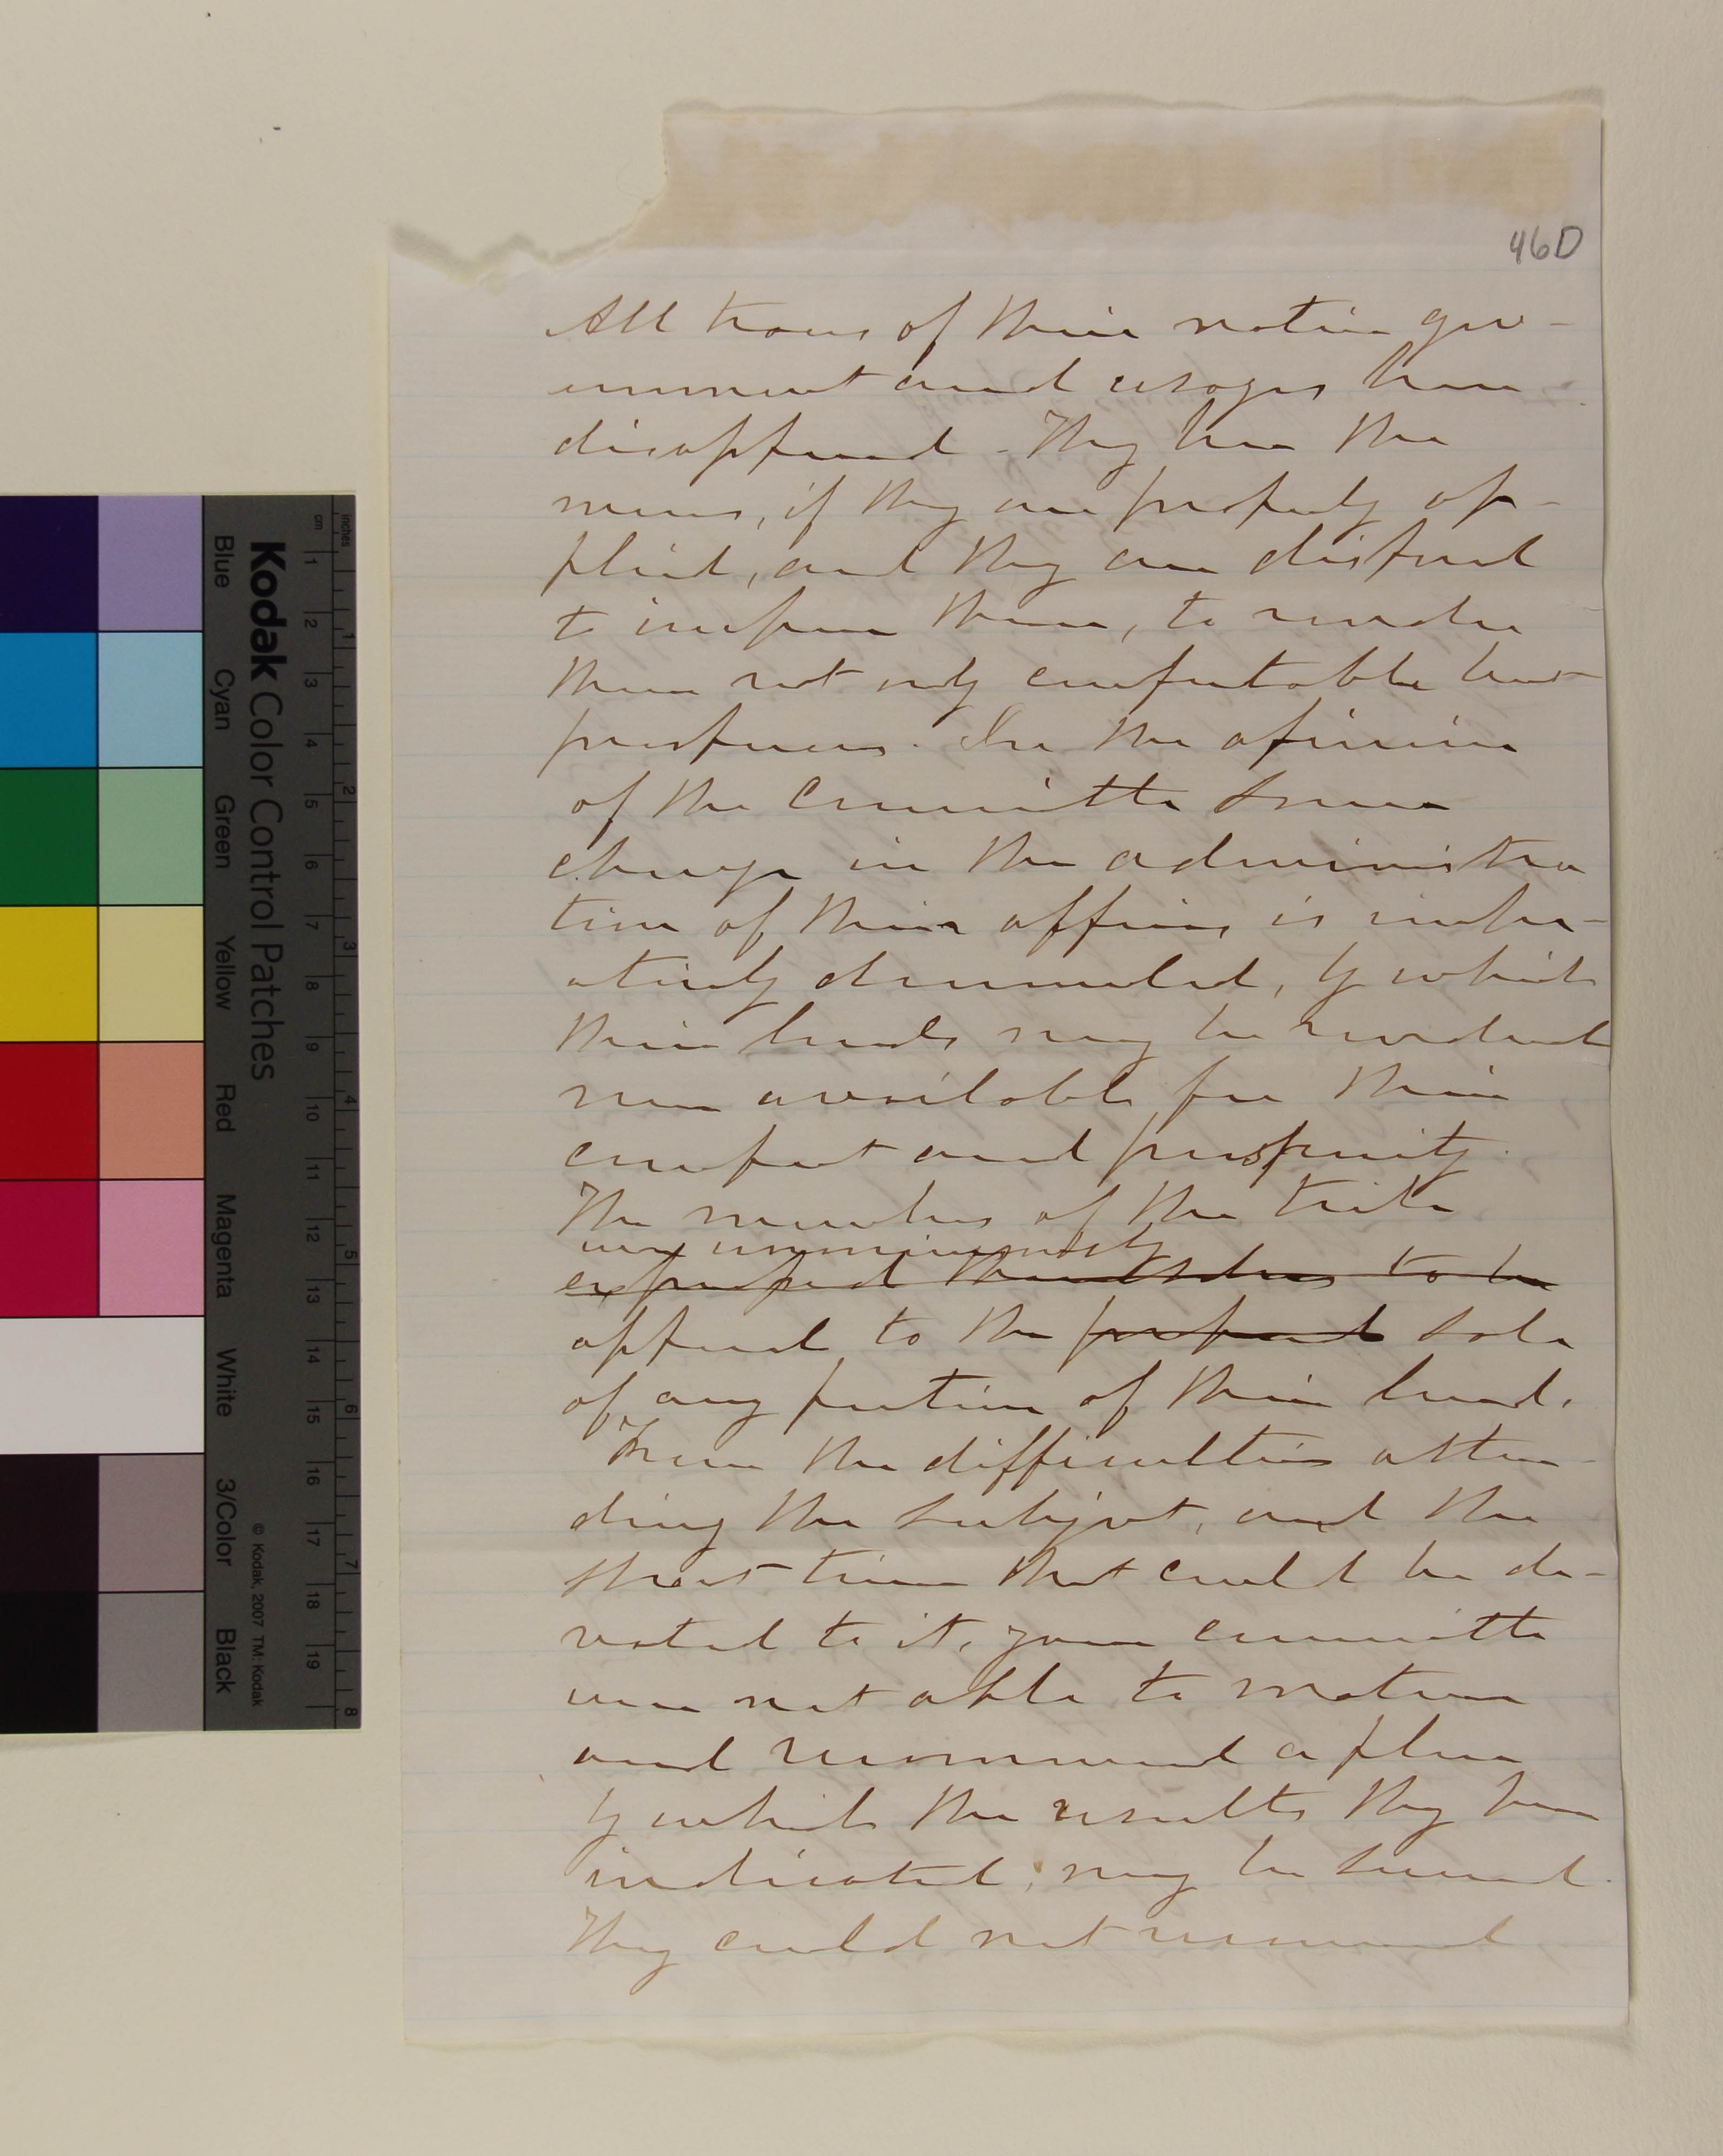 46D
All traces of their native gov-
ernment and usages have
disappeared. They have the
means, if they are properly ap-
plied, and they are disposed
to improve them, to render
them not only comfortable but
prosperous. In the opinion
of the Committee some
change in the administra
tion of their affairs is imper-
atively demanded, by which
their lands may be rendered
more available for their
comfort and prosperity.
The members of the tribe
were unanimously
expressed themselves to be
opposed to the proposed sale
of any portion of their land.
From the difficulties atten-
ding the subject, and the
short time that could be de-
voted to it, your committee
were not able to mature
and recommend a plan
by which the results they have
indicated, may be secured.
They could not recommend
Kodak Color Control Patches
Blue Cyan Green Yellow Red Magenta White 3/Color Black
© Kodak, 2007 TM: Kodak
inches 1 2 3 4 5 6 7 8
cm 1 2 3 4 5 6 7 8 9 10 11 12 13 14 15 16 17 18 19